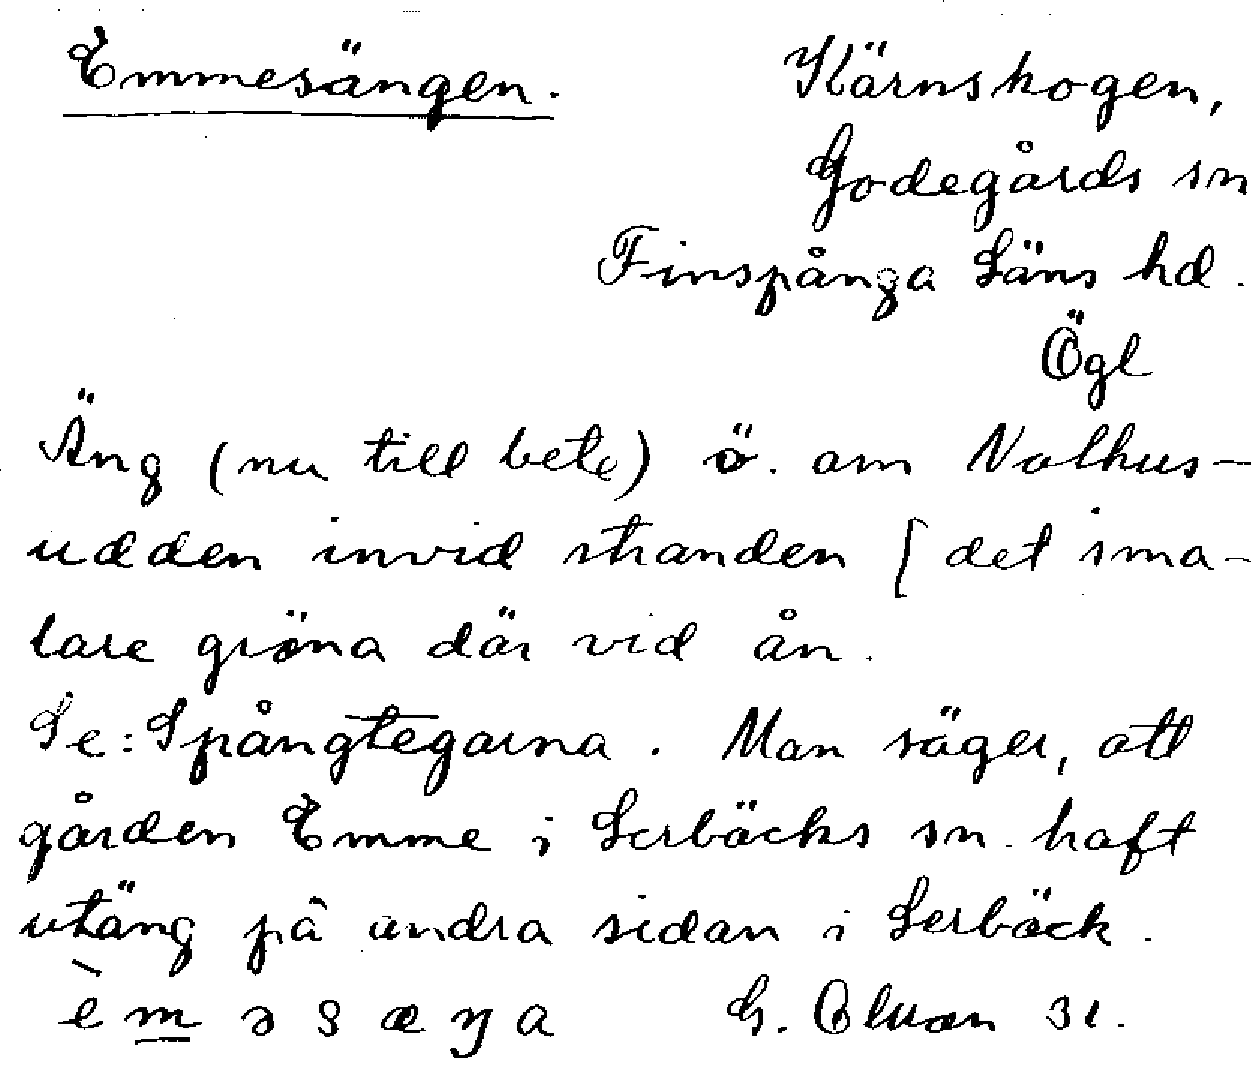 Emmesängen. Kärnskogen,
Godegårds sn
Finspånga Läns hd.
Ögl
Äng (nu till bete) ö. om Valhus-
udden invid stranden [ det sma-
lare gröna där vid ån.
Se: Spångtegarna. Man säger, att
gården Emme i Lerbäcks sn. haft
utäng på andra sidan i Lerbäck.
èməsæŋa G. 31.